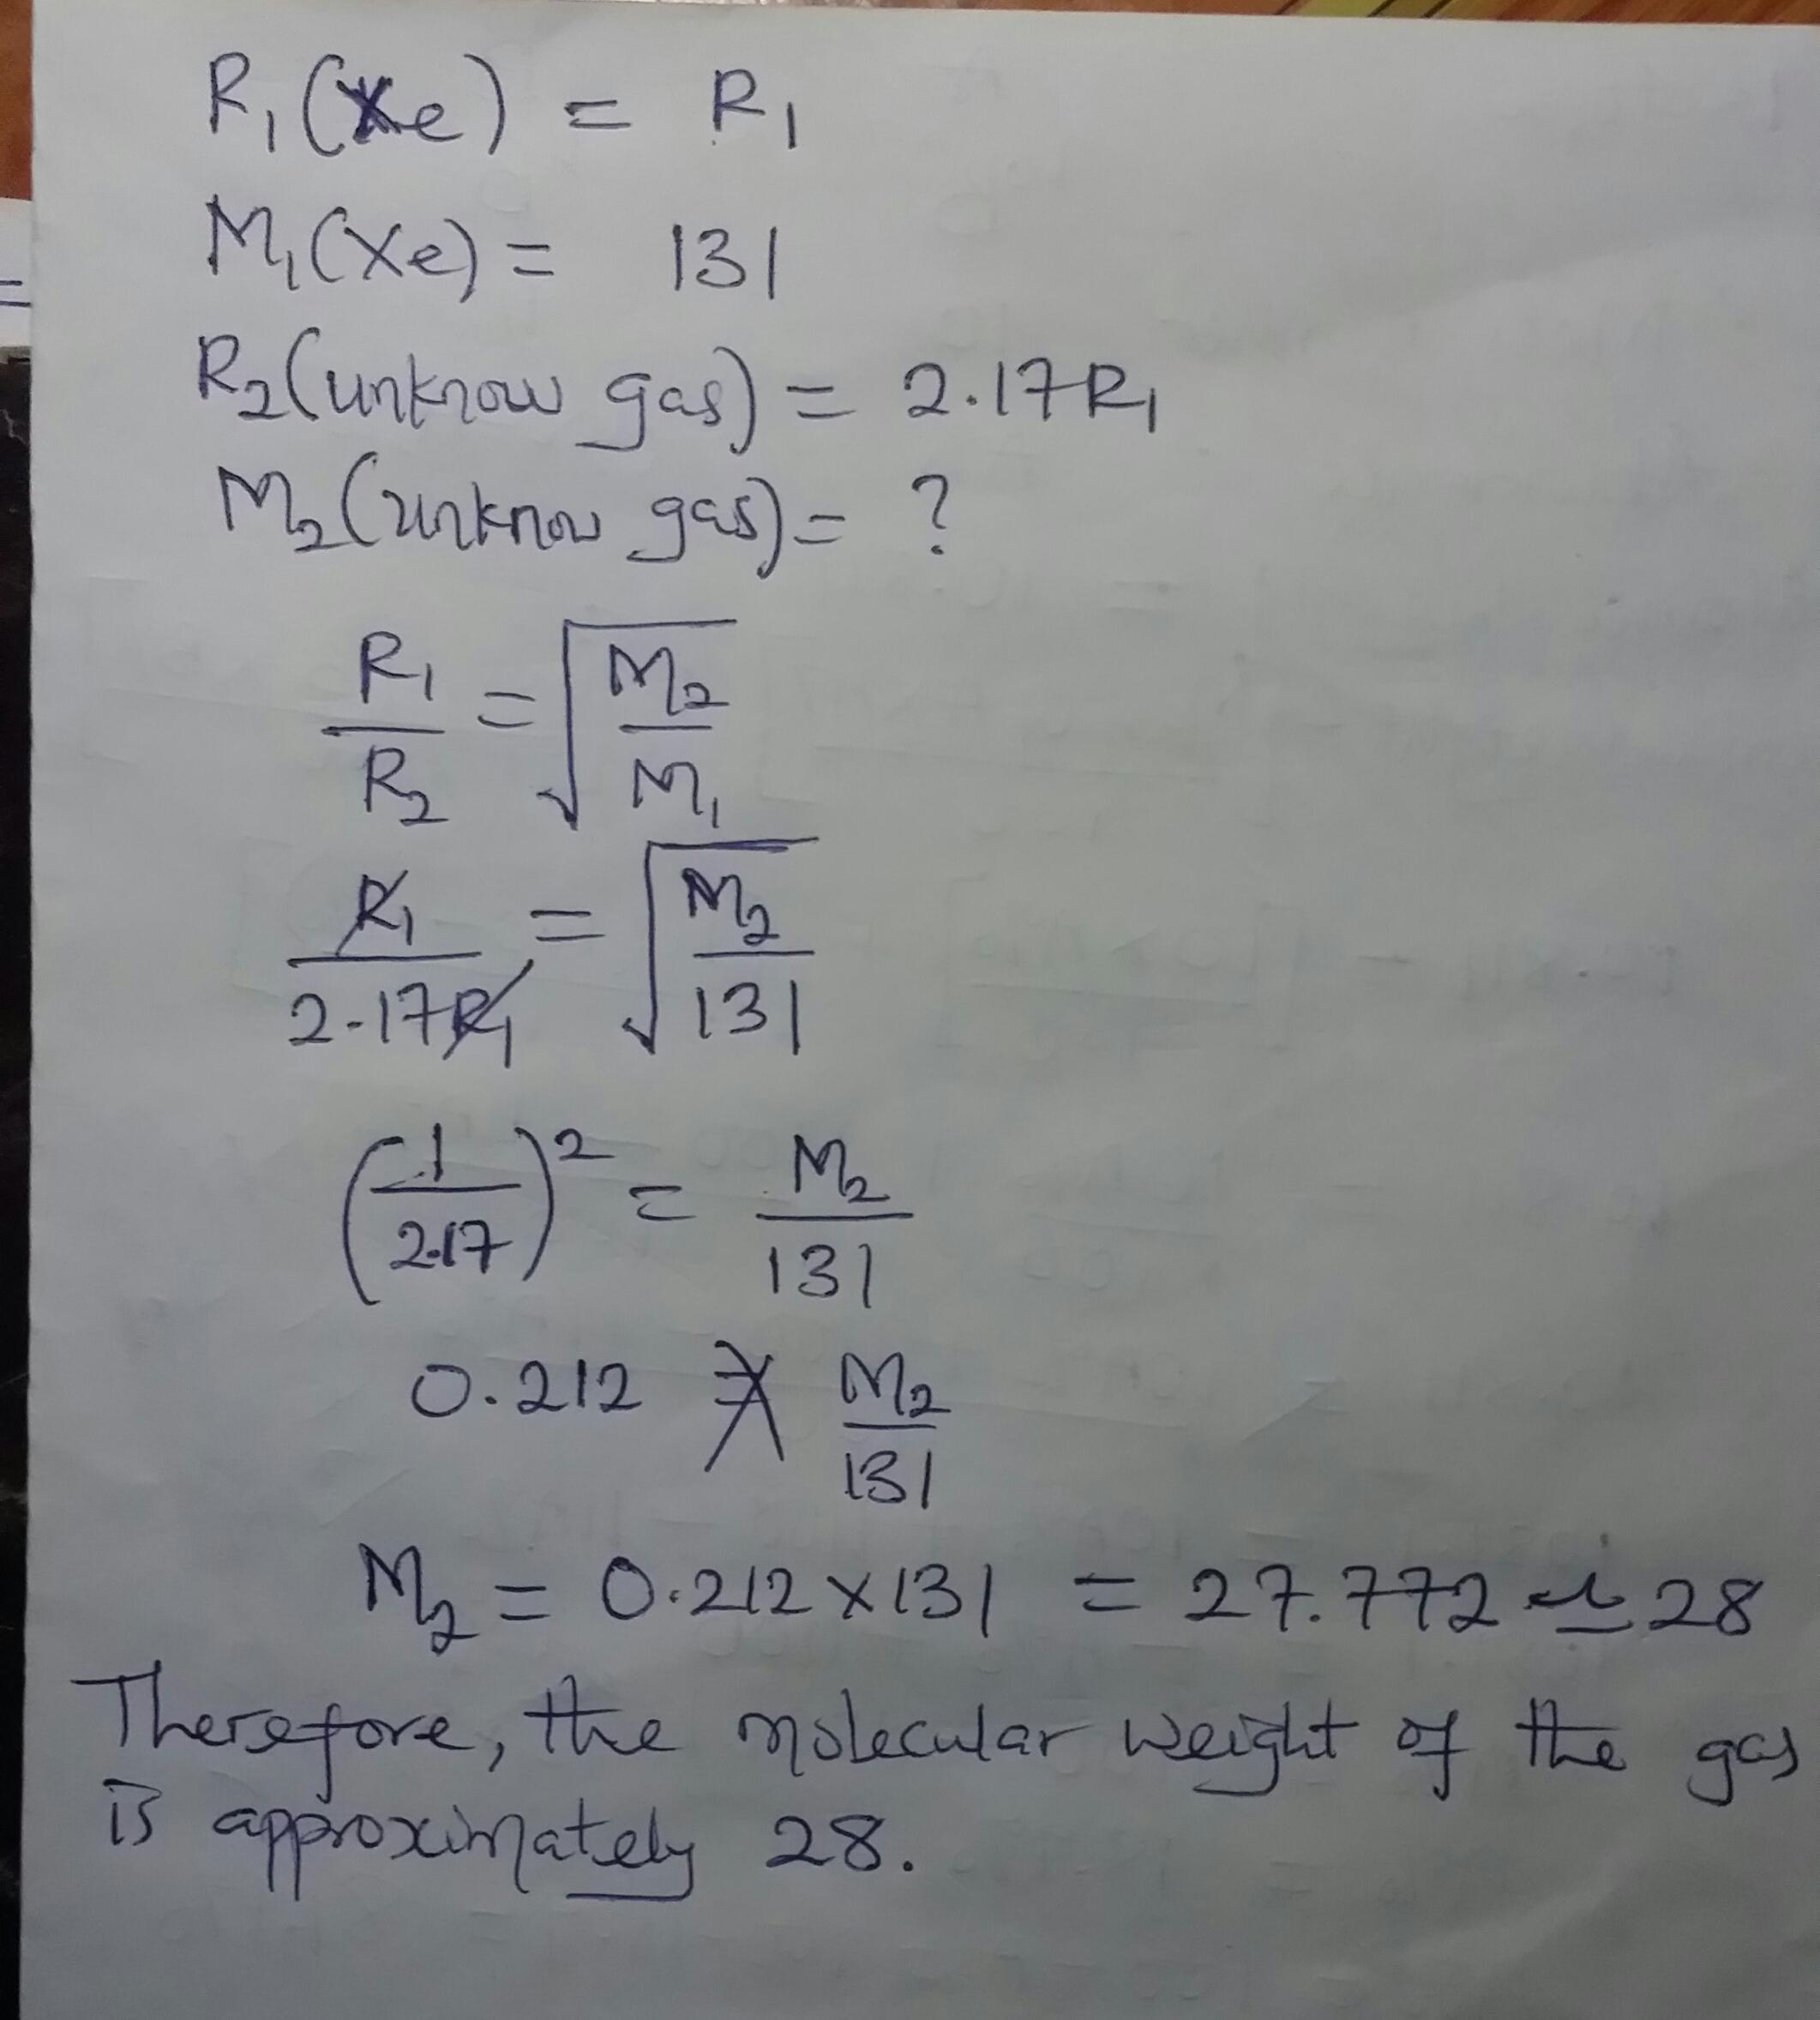 R₁(Xe) = R₁
M₁(Xe) = 131
R₂(unknow gas) = 2.17R₁
M₂(unknow gas) = ?
R₁/R₂ = √(M₂/M₁)
R₁/2.17R₁ = √(M₂/131)
(1/2.17)² = M₂/131
0.212 = M₂/131
M₂ = 0.212 × 131 = 27.772 ≃ 28
Therefore, the molecular weight of the gas
is approximately 28.